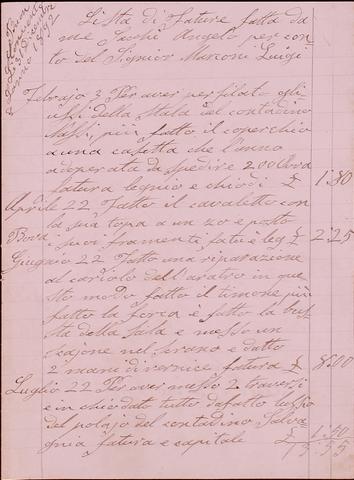 Lista di fature fatta da
me Angelo per con
to del Signior Marconi Luigi
Febrajo 3 Per aver perfilato gli
ussi della stala del contadino
più fatto il coperchio
a una casetta che l'anno
adoperata da spedire 200 Uova
fatura legnio e chiodi £ 1.80
Aprile 22 Fatto il cavaletto con
la sua topa a un zo e posto
Bova i suoi framenti fatu e leg £ 2.25
Giugnio 22 Fatto una riparazione
al cariolo dell'aratro in que
sto modo fatto il timone più
fatto la forca e fatto la bus
ta della sala e messo un
e datto
2 mani di vernice fatura £ 8.00
Luglio 22 Per aver messo 2 traversi
e inchiodato tutto dafatto lussio
del polajo del contadino Salva
gnia fatura e capitale £ 1.50
1892